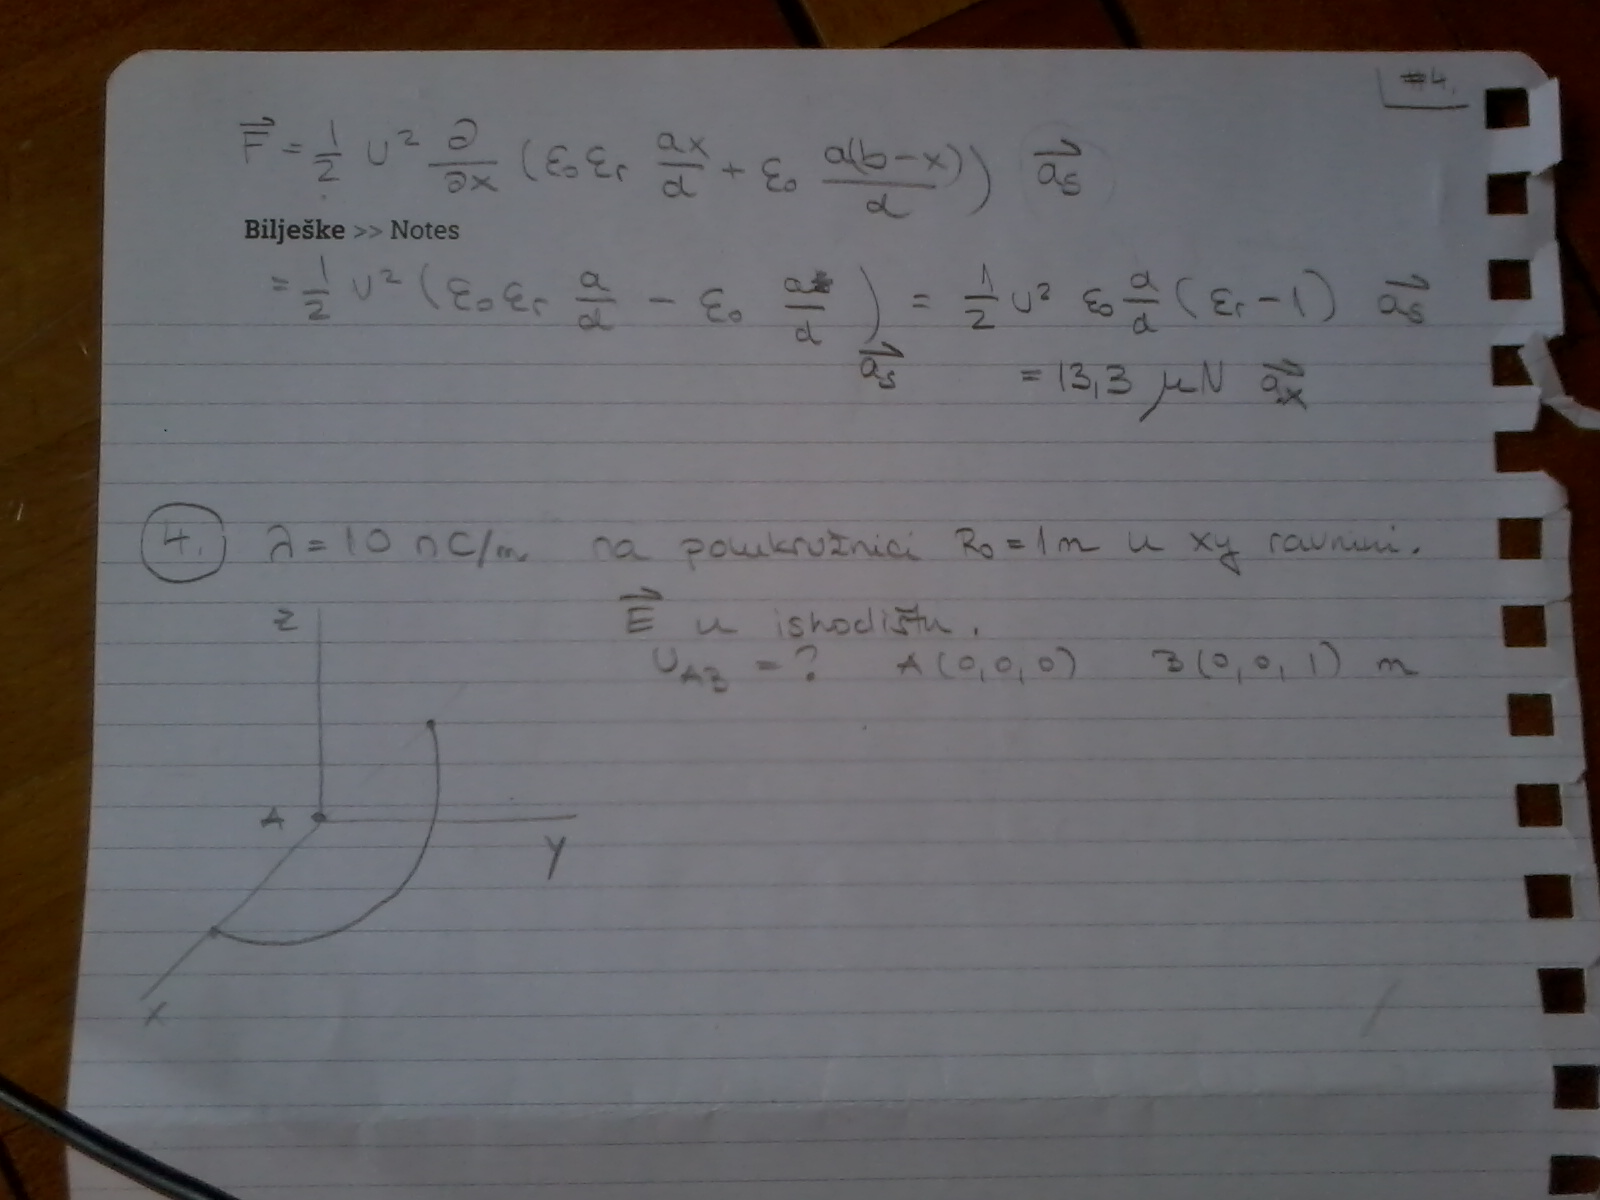 #4.
F = 1/2 U² ∂/∂x (ε₀εᵣ ax/d + ε₀ a(b-x)/d) aₛ
Bilješke >> Notes
= 1/2 U² (ε₀εᵣ a/d - ε₀ a/d) aₛ = 1/2 U² ε₀ a/d (εᵣ - 1) aₛ
= 13,3 μN aₓ
4. λ = 10 nC/m na polukružnici R₀ = 1m u xy ravnini.
E u ishodištu.
U_AB = ? A(0,0,0) B(0,0,1) m
z
A
y
x